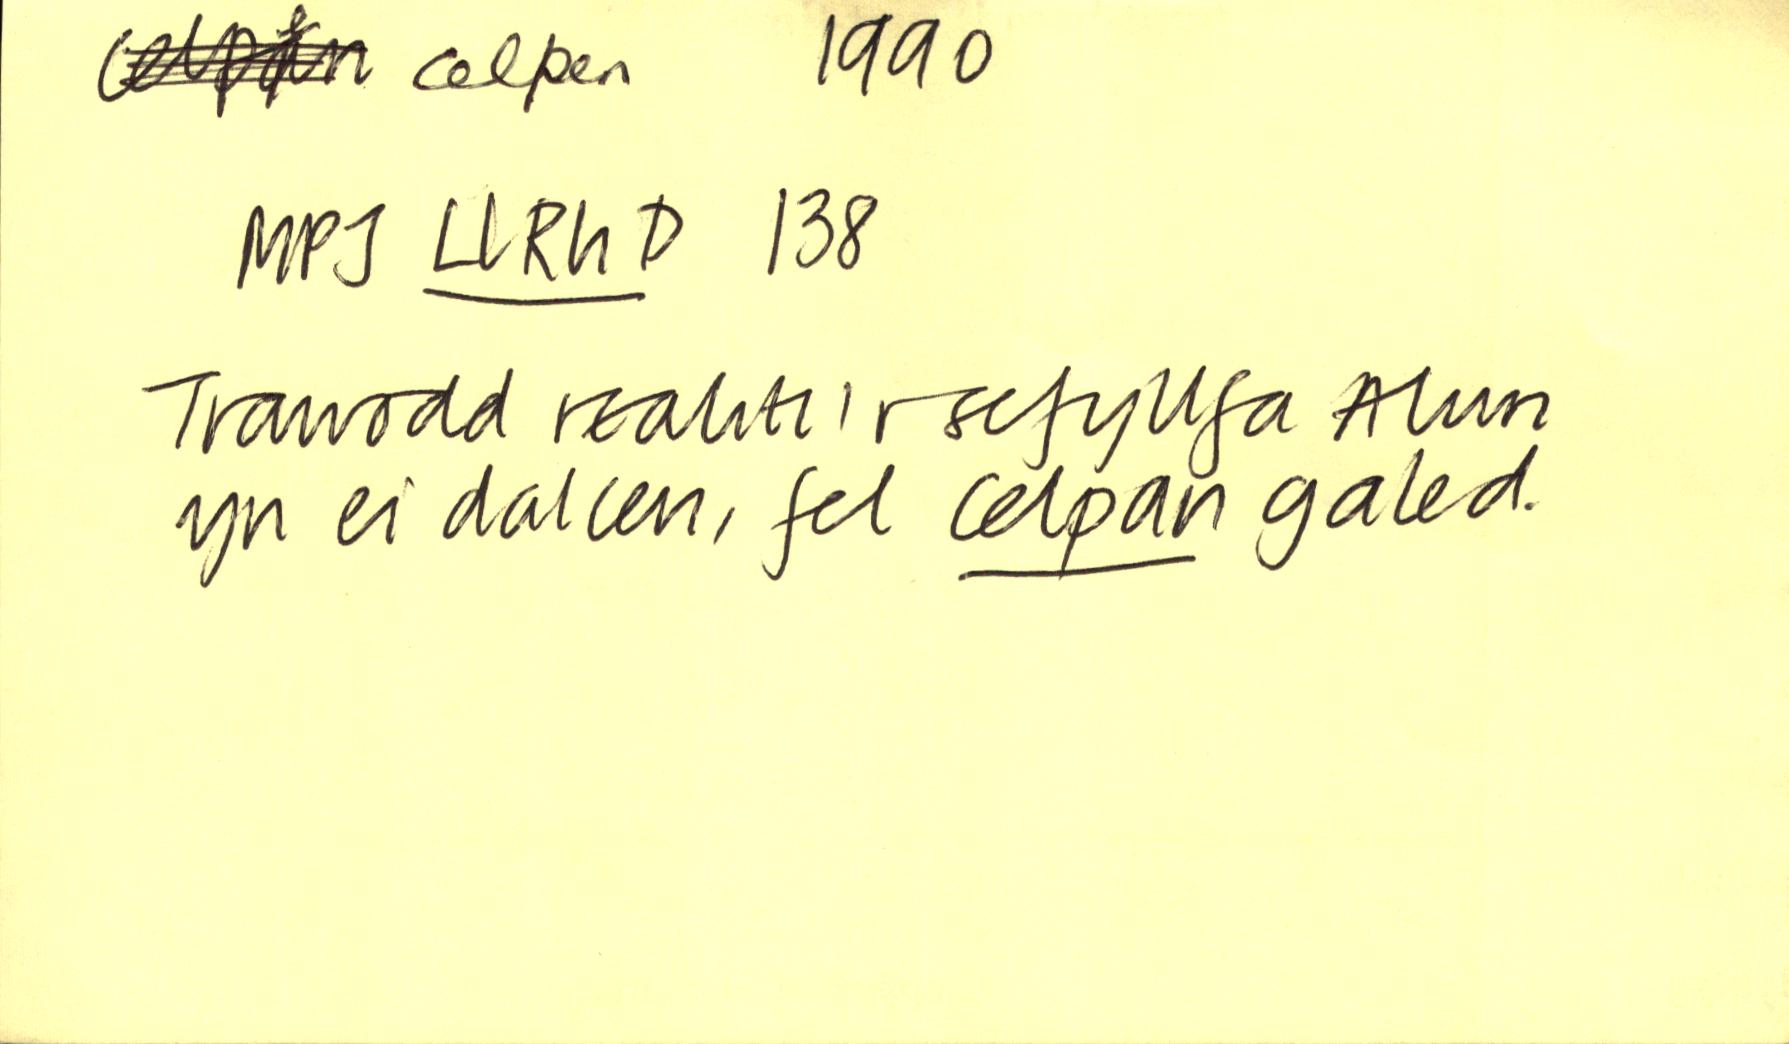 celpen 1990
MPJ LlRhD 138
Trawodd realiti'r sefyllfa Alun
yn ei dalcen, fel celpan galed.